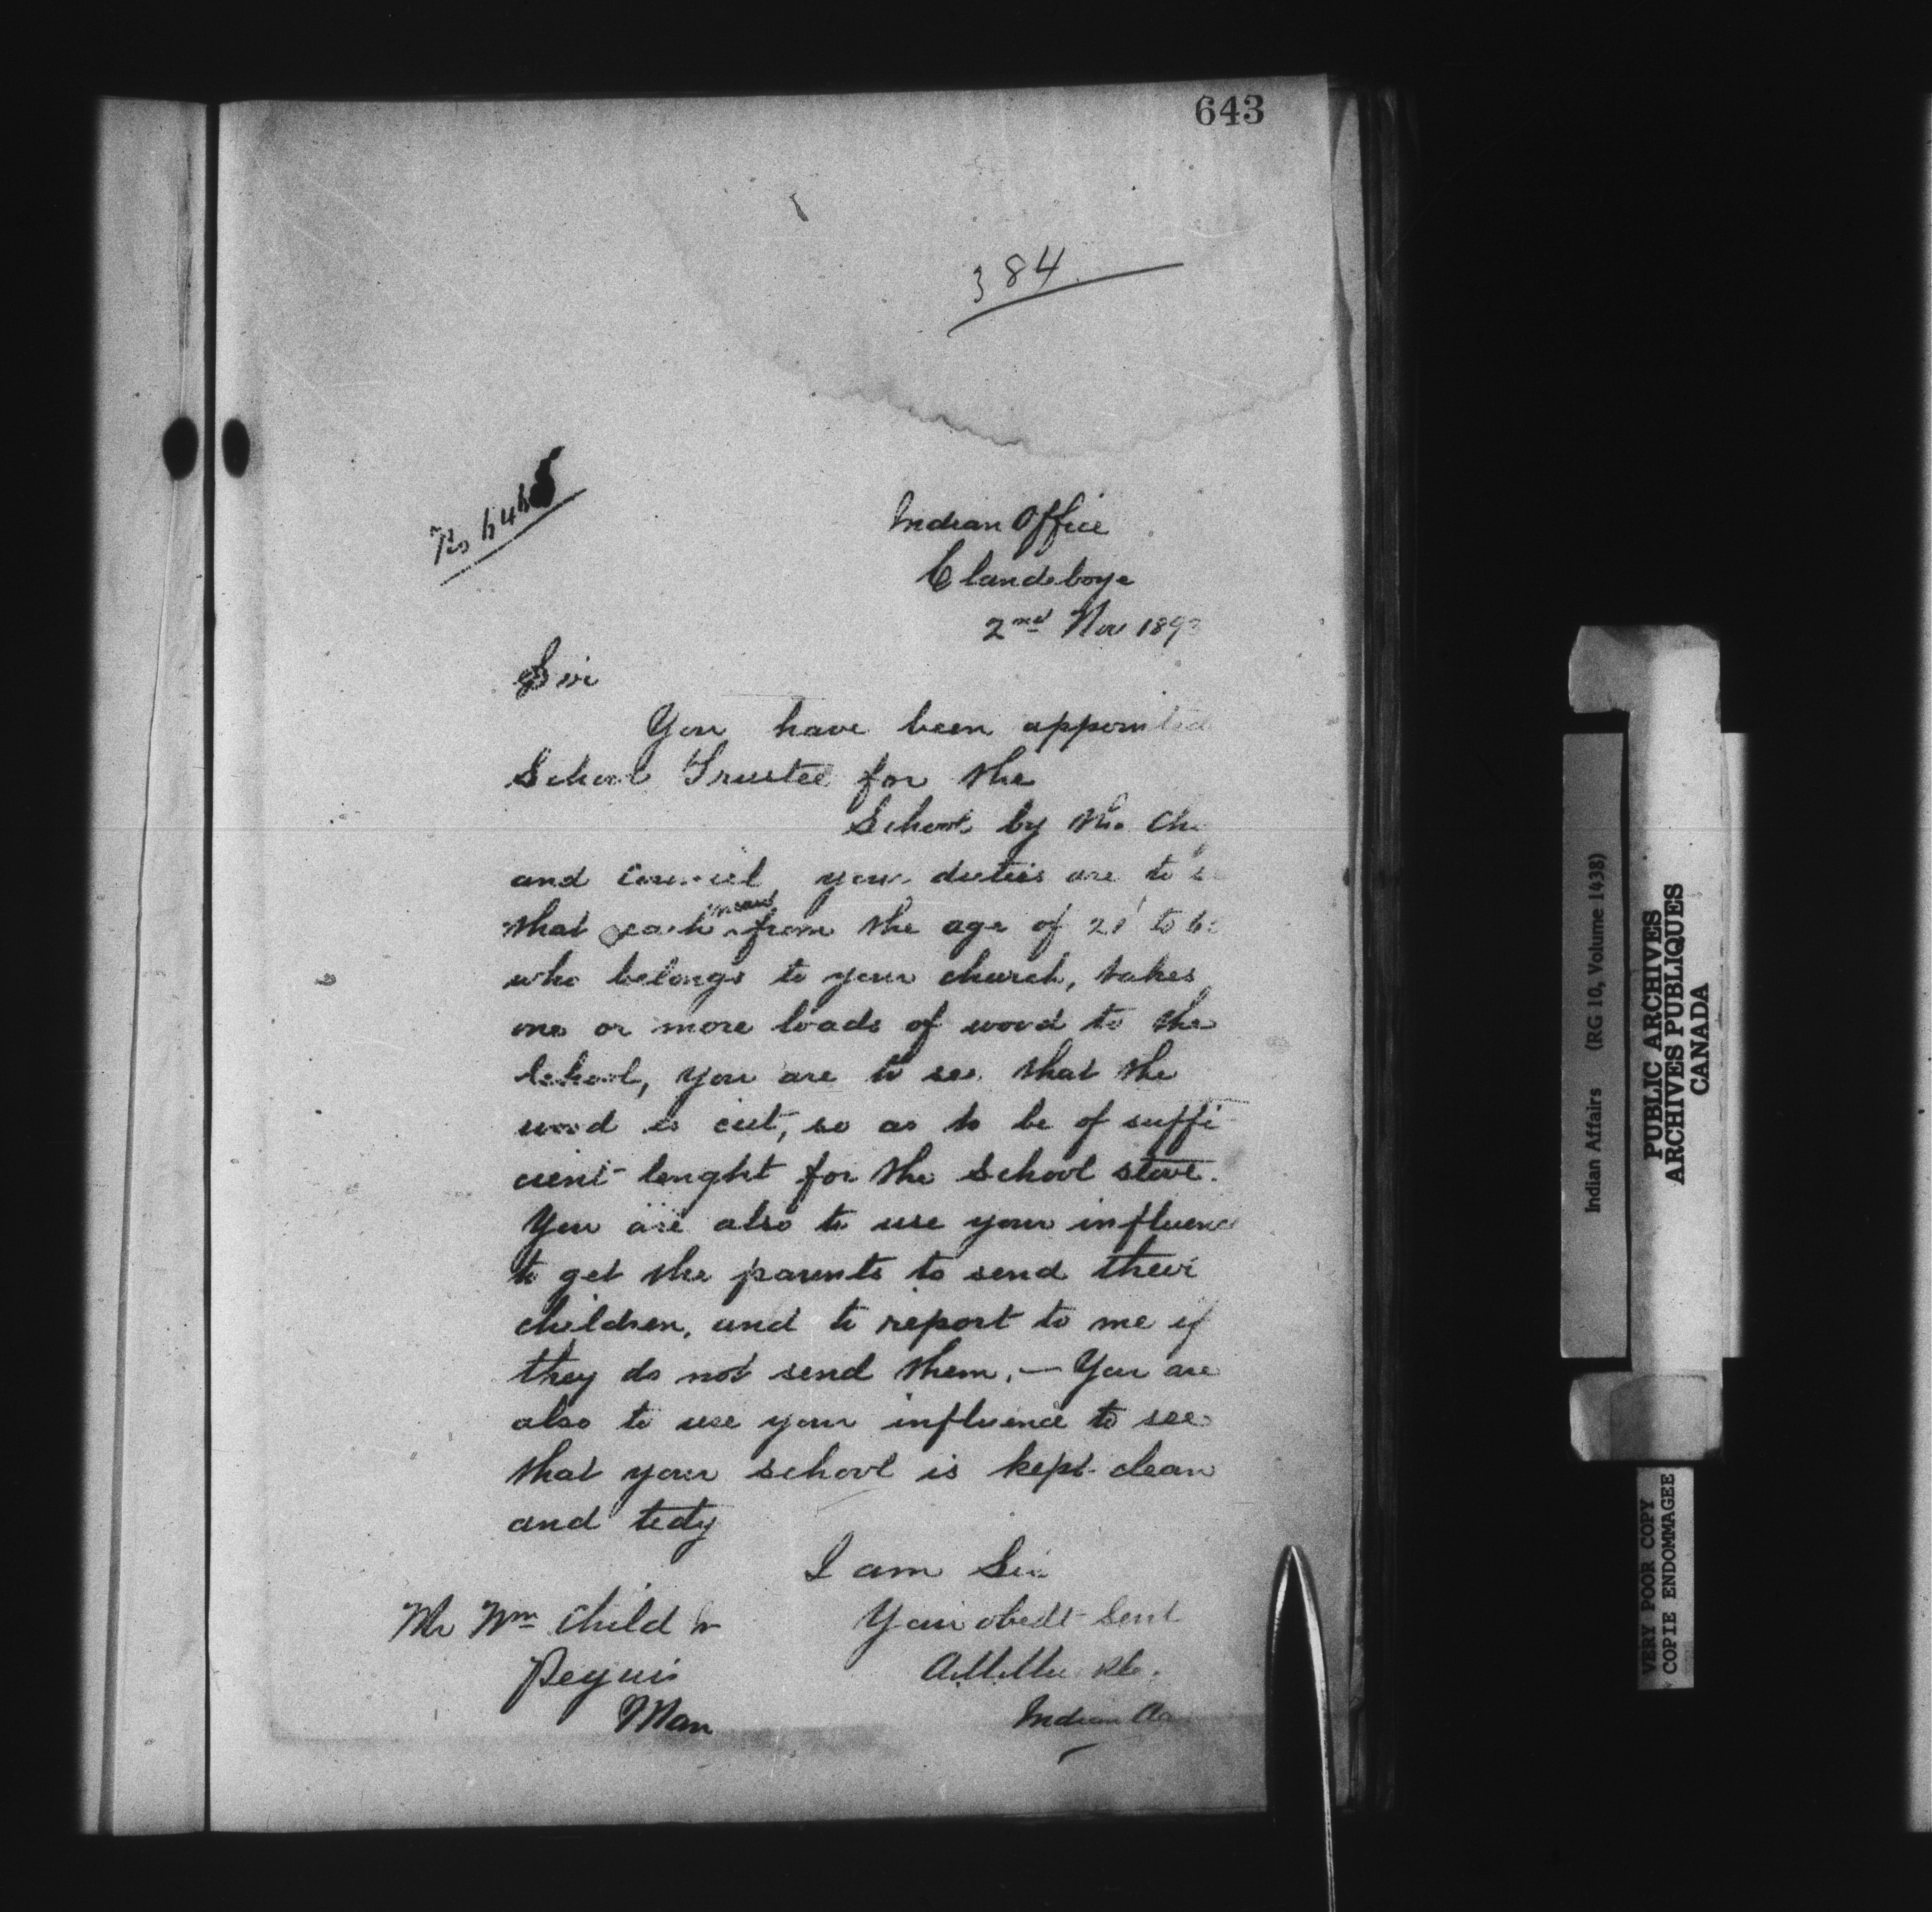 643
384
Indian Office
Clandeboye
2nd Nov 1893
Sir
You have been appointed
School Trustee for the
School by the
and Council, your duties are to
that each from the age of 21 to
who belongs to your church, takes
one or more loads of wood to the
School, you are to see that the
wood is cut, so as to be of suffi-
cient lenght for the School stove.
You are also to use your influence
to get the parents to send their
children, and to report to me if
they do not send them. — You are
also to use your influence to see
that your school is kept clean
and tedy
I am Sir
Your obedt Servt
Indian
Mr Wm Child
Peguis
Man
Indian Affairs (RG 10, Volume 1438)
PUBLIC ARCHIVES
ARCHIVES PUBLIQUES
CANADA
VERY POOR COPY
COPIE ENDOMMAGEE